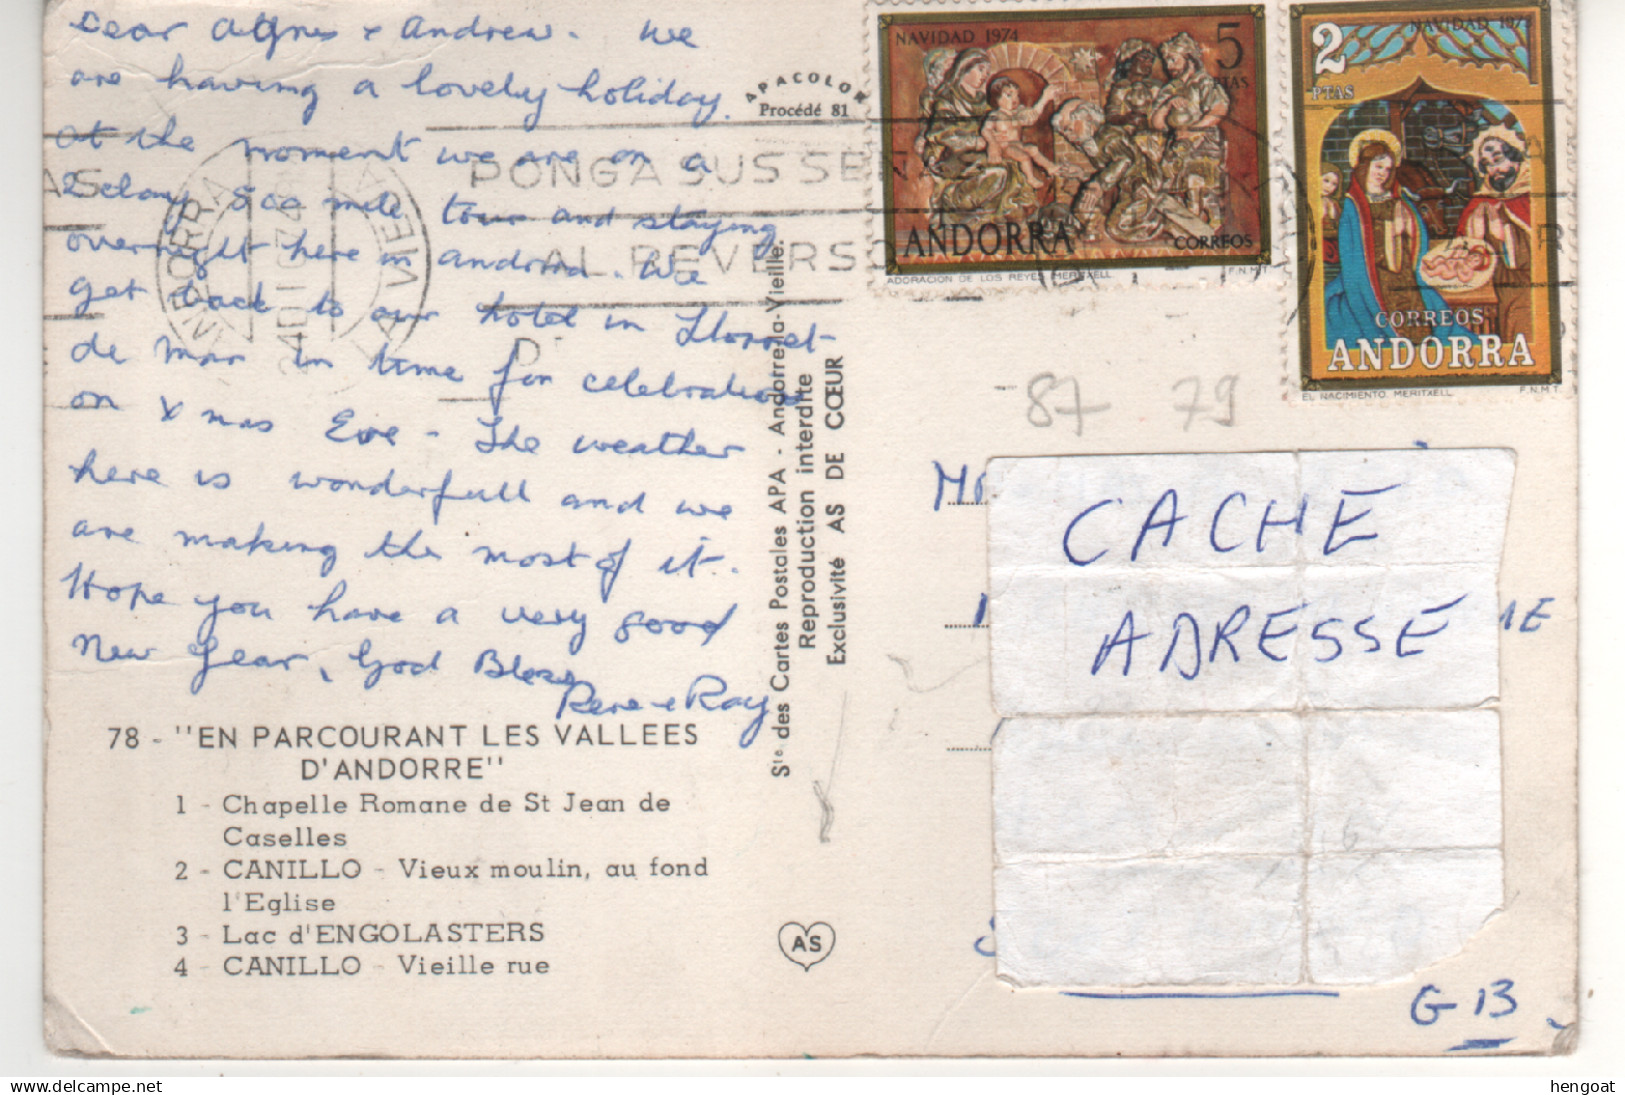 Dear Agnes & Andrew. We
are having a lovely holiday.
At the moment we are on a
2 day 500 mile tour and staying
overnight here in Andorra. We
get back to our hotel in Lloret-
de Mar in time for celebrations
on Xmas Eve - The weather
here is wonderfull and we
are making the most of it.
Hope you have a very good
New Year, God Bless
Rene & Ray
78 - "EN PARCOURANT LES VALLEES
D'ANDORRE"
1 - Chapelle Romane de St Jean de
Caselles
2 - CANILLO - Vieux moulin, au fond
l'Eglise
3 - Lac d'ENGOLASTERS
4 - CANILLO - Vieille rue
APACOLOR
Procédé 81
Sté des Cartes Postales APA - Andorre-la-Vieille.
Reproduction interdite
Exclusivité AS DE CŒUR
AS
PONGA SUS SE
AL REVERSO
D
ANDORRA
LA VIEJA
NAVIDAD 1974
5
PTAS
ANDORRA
CORREOS
ADORACION DE LOS REYES MERITXELL
F.N.M.T.
2
PTAS
NAVIDAD 1973
CORREOS
ANDORRA
EL NACIMIENTO. MERITXELL
F.N.M.T.
87 79
CACHE
ADRESSE
G 13
hengoat